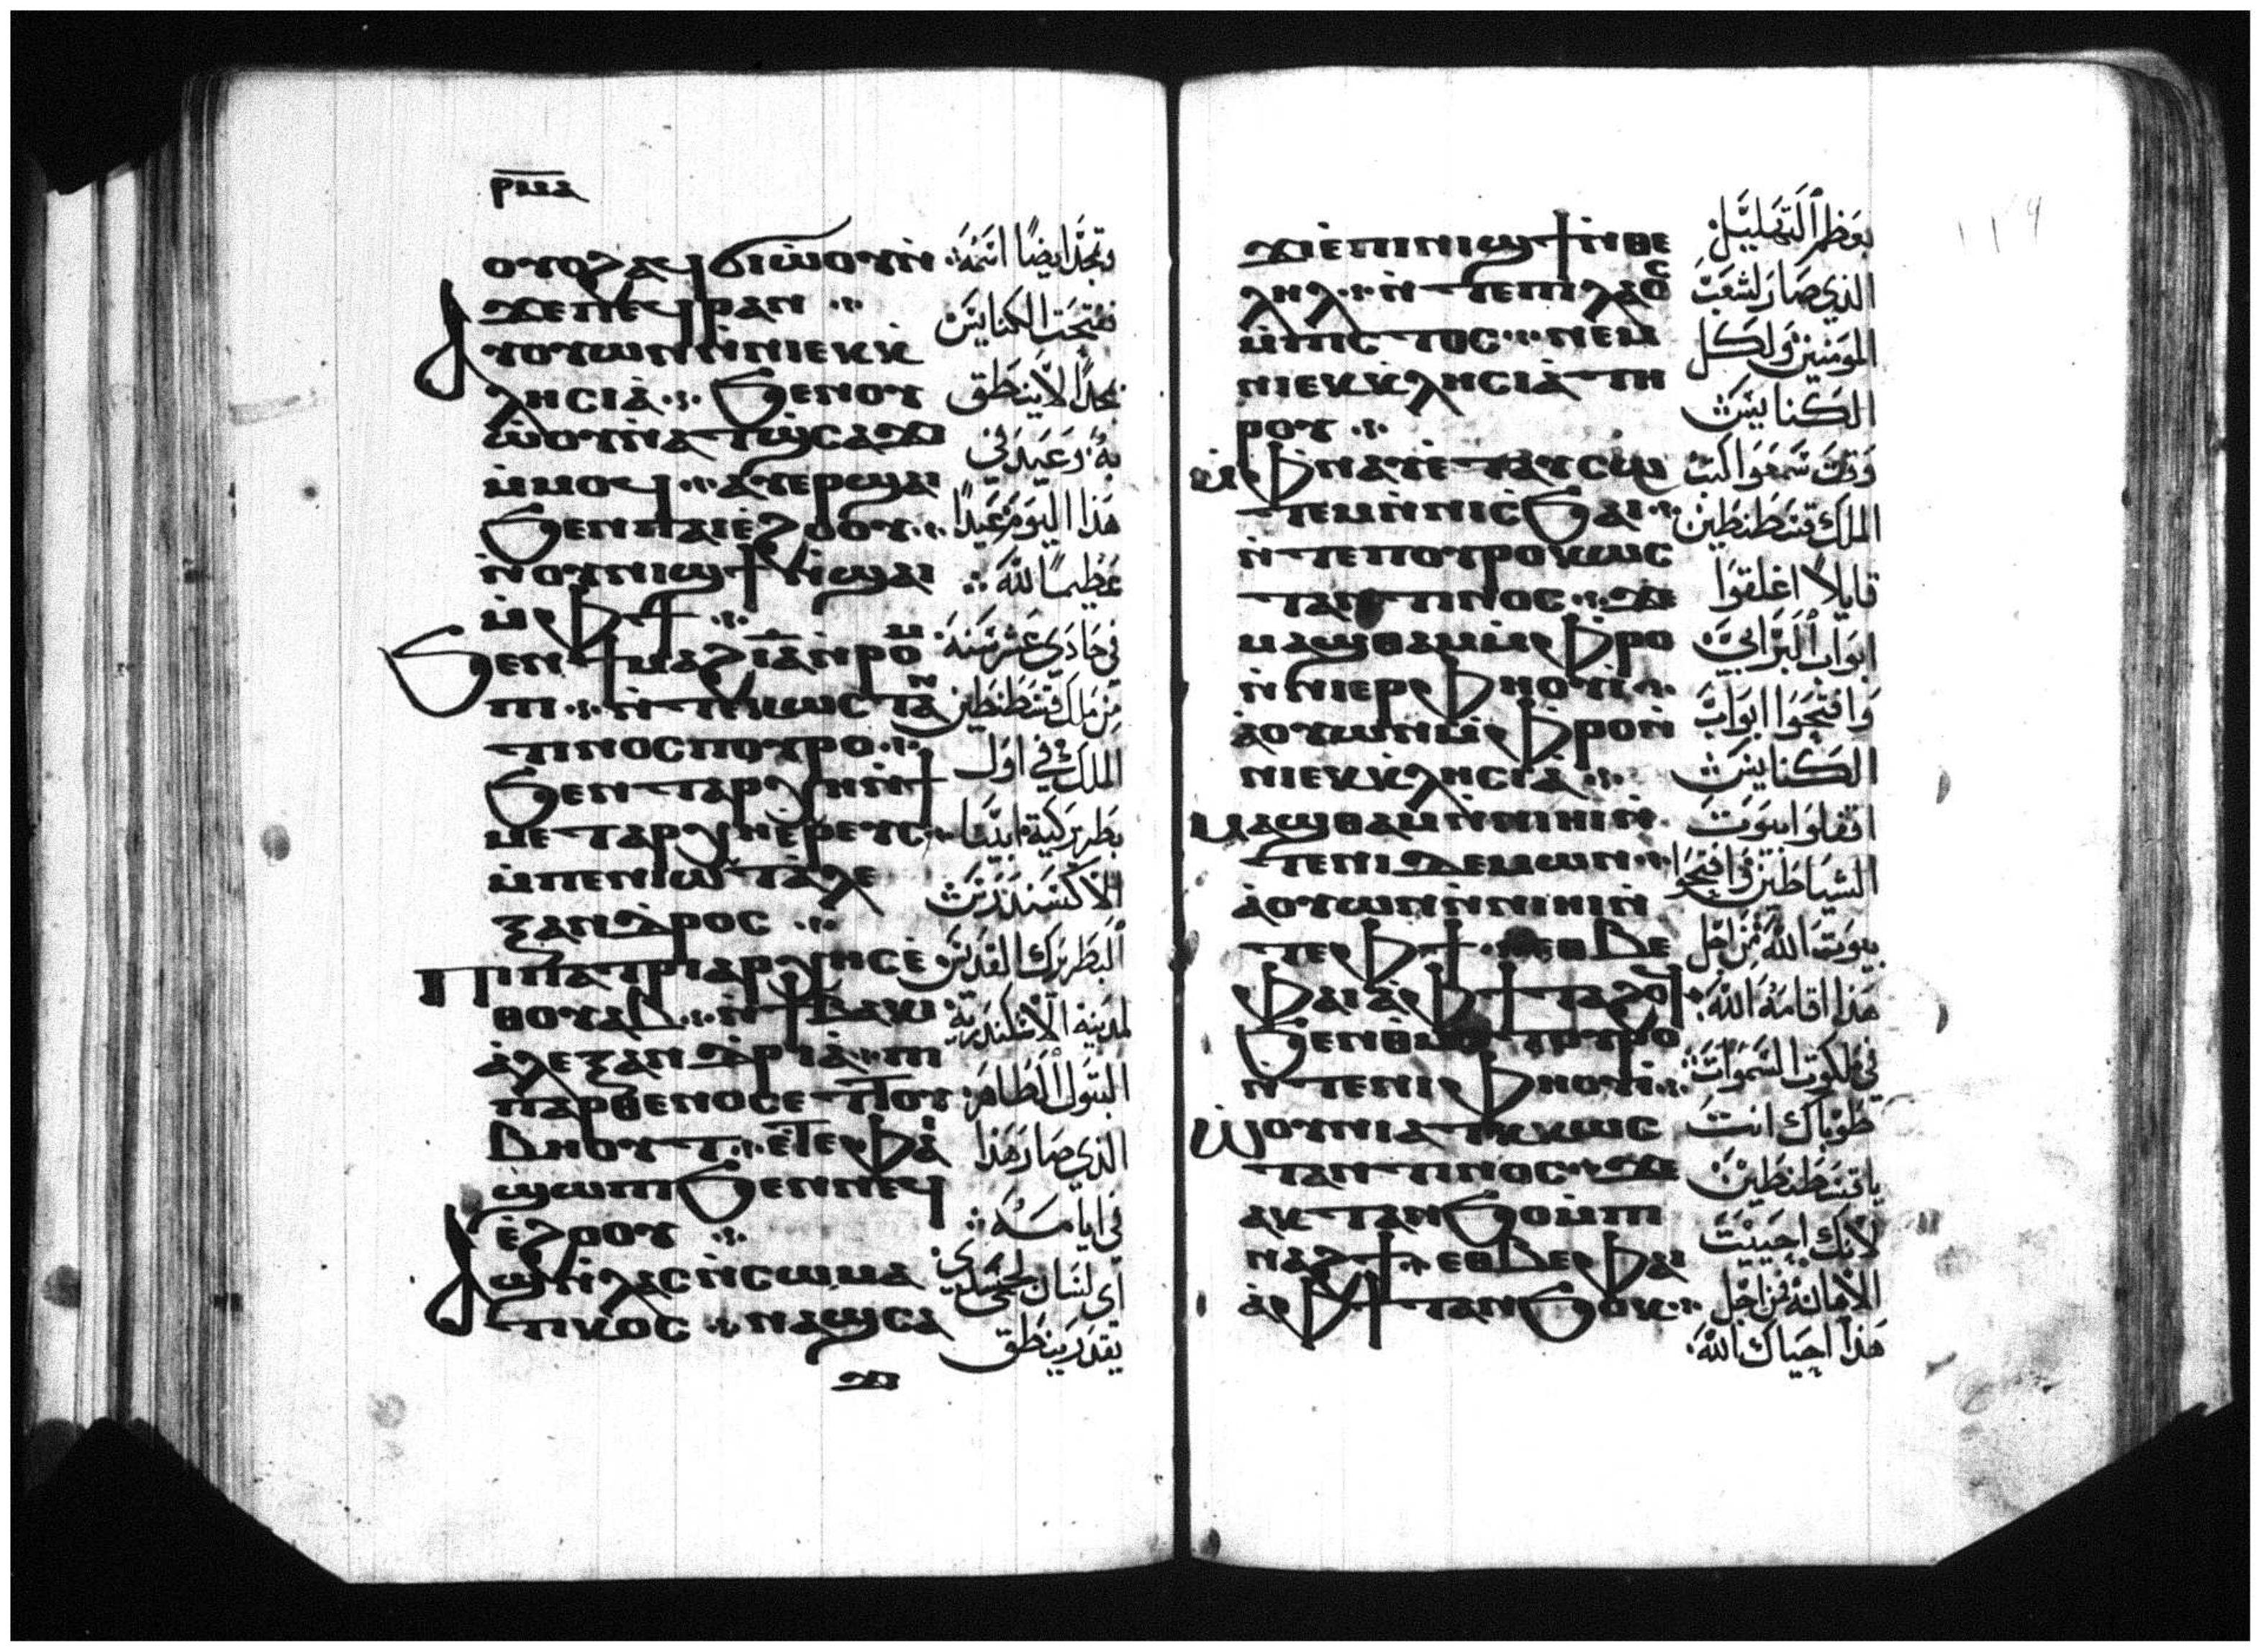 ⲣⲙⲁ
ⲟⲩⲟϩ ⲁϥϭⲓⲱ̀ⲟⲩ ⲛ̀
ϫⲉ ⲡⲉϥⲣⲁⲛ ⁘
ⲁⲩⲟⲩⲱⲛ ⲛ̀ⲛⲓⲉⲕⲕ̀
ⲗⲏⲥⲓⲁ̀ ⁘ ϧⲉⲛ ⲟⲩ
ⲱ̀ⲟⲩ ⲛ̀ⲁⲧϣⲥⲁϫⲓ
ⲙ̀ⲙⲟϥ ⁘ ⲁⲩⲉⲣϣⲁⲓ
ϧⲉⲛ ⲡⲁⲓⲉ̀ϩⲟⲟⲩ ⁘
ⲛ̀ⲟⲩⲛⲓϣϯ ⲛ̀ϣⲁⲓ
ⲙ̀ⲫϯ ⁘
ϧⲉⲛ ϯⲙⲁϩⲓ̅ⲁ̅ ⲛ̀ⲣⲟⲙ
ⲡⲓ ⁘ ⲛ̀ⲧⲉ ⲕⲱⲥⲧⲁⲛ
ⲧⲓⲛⲟⲥ ⲡⲟⲩⲣⲟ ⁘
ϧⲉⲛ ⲧⲁⲣⲭⲏ ⲛ̀ϯ
ⲙⲉⲧⲁⲣⲭⲏⲉ̀ⲣⲉⲩⲥ ⁘
ⲙ̀ⲡⲉⲛⲓⲱⲧ ⲁ̀ⲗⲉ
ⲝⲁⲛⲇⲣⲟⲥ ⁘
ⲡⲓⲡⲁⲧⲣⲓⲁⲣⲭⲏⲥ ⲉ̀
ⲑⲟⲩⲁⲃ ⁘ ⲛ̀ϯⲃⲁⲕⲓ
ⲁ̀ⲗⲉⲝⲁⲛⲇⲣⲓⲁ̀ ⁘ ⲡⲓ
ⲡⲁⲣⲑⲉⲛⲟⲥ ⲉⲧⲧⲟⲩ
ⲃⲏⲟⲩⲧ ⁘ ⲉ̀ⲧⲉ ⲫⲁⲓ
ϣⲱⲡⲓ ϧⲉⲛ ⲛⲉϥ
ⲉ̀ϩⲟⲟⲩ ⁘
ⲁϣ ⲛ̀ⲗⲁⲥ ⲛ̀ⲥⲱⲙⲁ
ⲧⲓⲕⲟⲥ ⁘ ⲛⲁϣⲥⲁ
ϫⲓ
وتمجد ايضًا اسمه
فتحت الكنايس
بمجدًا لا ينطق
به وعيد في
هذا اليوم عيدًا
عظيمًا لله
في حادي عشر سنة
من ملك قسطنطين
الملك في اول
بطريركية ابينا
الاكسندرس
البطريرك القديس
لمدينة الاسكندرية
البتول الطاهر
الذي صار هذا
في ايامه
اي لسان لحمي
يقدر ينطق
ϫⲓ ⲉ̀ⲡⲓⲛⲓϣϯ ⲛ̀ⲑⲉ
ⲗⲏⲗ ⁘ ⲛ̀ⲧⲉ ⲡⲓⲗⲁⲟⲥ
ⲙ̀ⲡⲓⲥⲧⲟⲥ ⁘ ⲛⲉⲙ
ⲛⲓⲉⲕⲕ̀ⲗⲏⲥⲓⲁ̀ ⲧⲏ
ⲣⲟⲩ ⁘
ⲙ̀ⲫⲛⲁⲩ ⲉ̀ⲧⲁⲩⲥⲱ
ⲧⲉⲙ ⲛ̀ⲛⲓⲥ̀ϧⲁⲓ ⁘
ⲛ̀ⲧⲉ ⲡⲟⲩⲣⲟ ⲕⲱⲥ
ⲧⲁⲛⲧⲓⲛⲟⲥ ⁘ ϫⲉ
ⲙⲁϣⲑⲁⲙ ⲙ̀ⲫⲣⲟ
ⲛ̀ⲛⲓⲉⲣⲫⲏⲟⲩⲓ̀ ⁘
ⲁ̀ⲟⲩⲱⲛ ⲙ̀ⲫⲣⲟ ⲛ̀
ⲛⲓⲉⲕⲕ̀ⲗⲏⲥⲓⲁ̀ ⁘
ⲙⲁϣⲑⲁⲙ ⲛ̀ⲛⲓⲏⲓ ⲛ̀
ⲧⲉ ⲛⲓⲇⲉⲙⲱⲛ ⁘
ⲁ̀ⲟⲩⲱⲛ ⲛ̀ⲛⲓⲏⲓ ⲛ̀
ⲧⲉ ⲫϯ ⁘ ⲉⲑⲃⲉ
ⲫⲁⲓ ⲁ̀ ⲫϯ ⲧⲁϩⲟϥ
ϧⲉⲛ ⲑⲙⲉⲧⲟⲩⲣⲟ
ⲛ̀ⲧⲉ ⲛⲓⲫⲏⲟⲩⲓ̀ ⁘
ⲱ̀ⲟⲩⲛⲓⲁⲧⲕ ⲕⲱⲥ
ⲧⲁⲛⲧⲓⲛⲟⲥ ⁘ ϫⲉ
ⲁⲕⲧⲁⲛϧⲟ ⲙ̀ⲡⲓ
ⲛⲁϩϯ ⁘ ⲉⲑⲃⲉ ⲫⲁⲓ
ⲁ̀ ⲫϯ ⲧⲁⲛϧⲟⲕ ⁘
١٣٩
بعظم التهليل
الذي صار لشعب
المومنين ولكل
الكنايس
وقت سمعوا كتب
الملك قسطنطين
قايلًا اغلقوا
ابواب البرابي
وافتحوا ابواب
الكنايس
اقفلوا بيوت
الشياطين وافتحوا
بيوت الله من اجل
هذا اقامه الله
في ملكوت السموات
طوباك انت
يا قسطنطين
لانك احييت
الامانه من اجل
هذا احياك الله